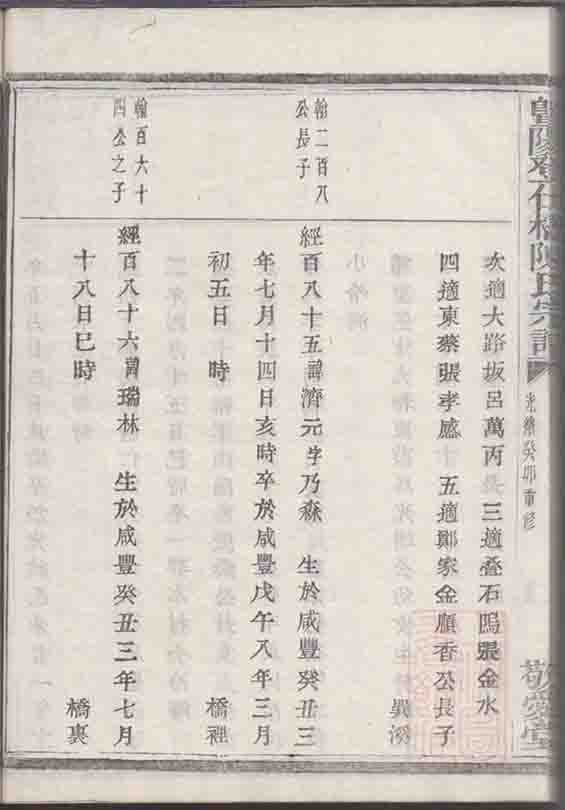 陳氏宗譜
光緒癸卯重修
敬愛堂
次適大路坂呂萬丙 三適叠石塢張金水
四適東蔡張孝感 五適鄭家金順香公長子
翰二百八
公長子
經百八十五諱濟元字乃森 生於咸豐癸丑三
年七月十四日亥時卒於咸豐戊午八年三月
初五日 時 橋裡
翰百六十
四公之子
經百八十六諱瑞林 生於咸豐癸丑三年七月
十八日巳時 橋裏